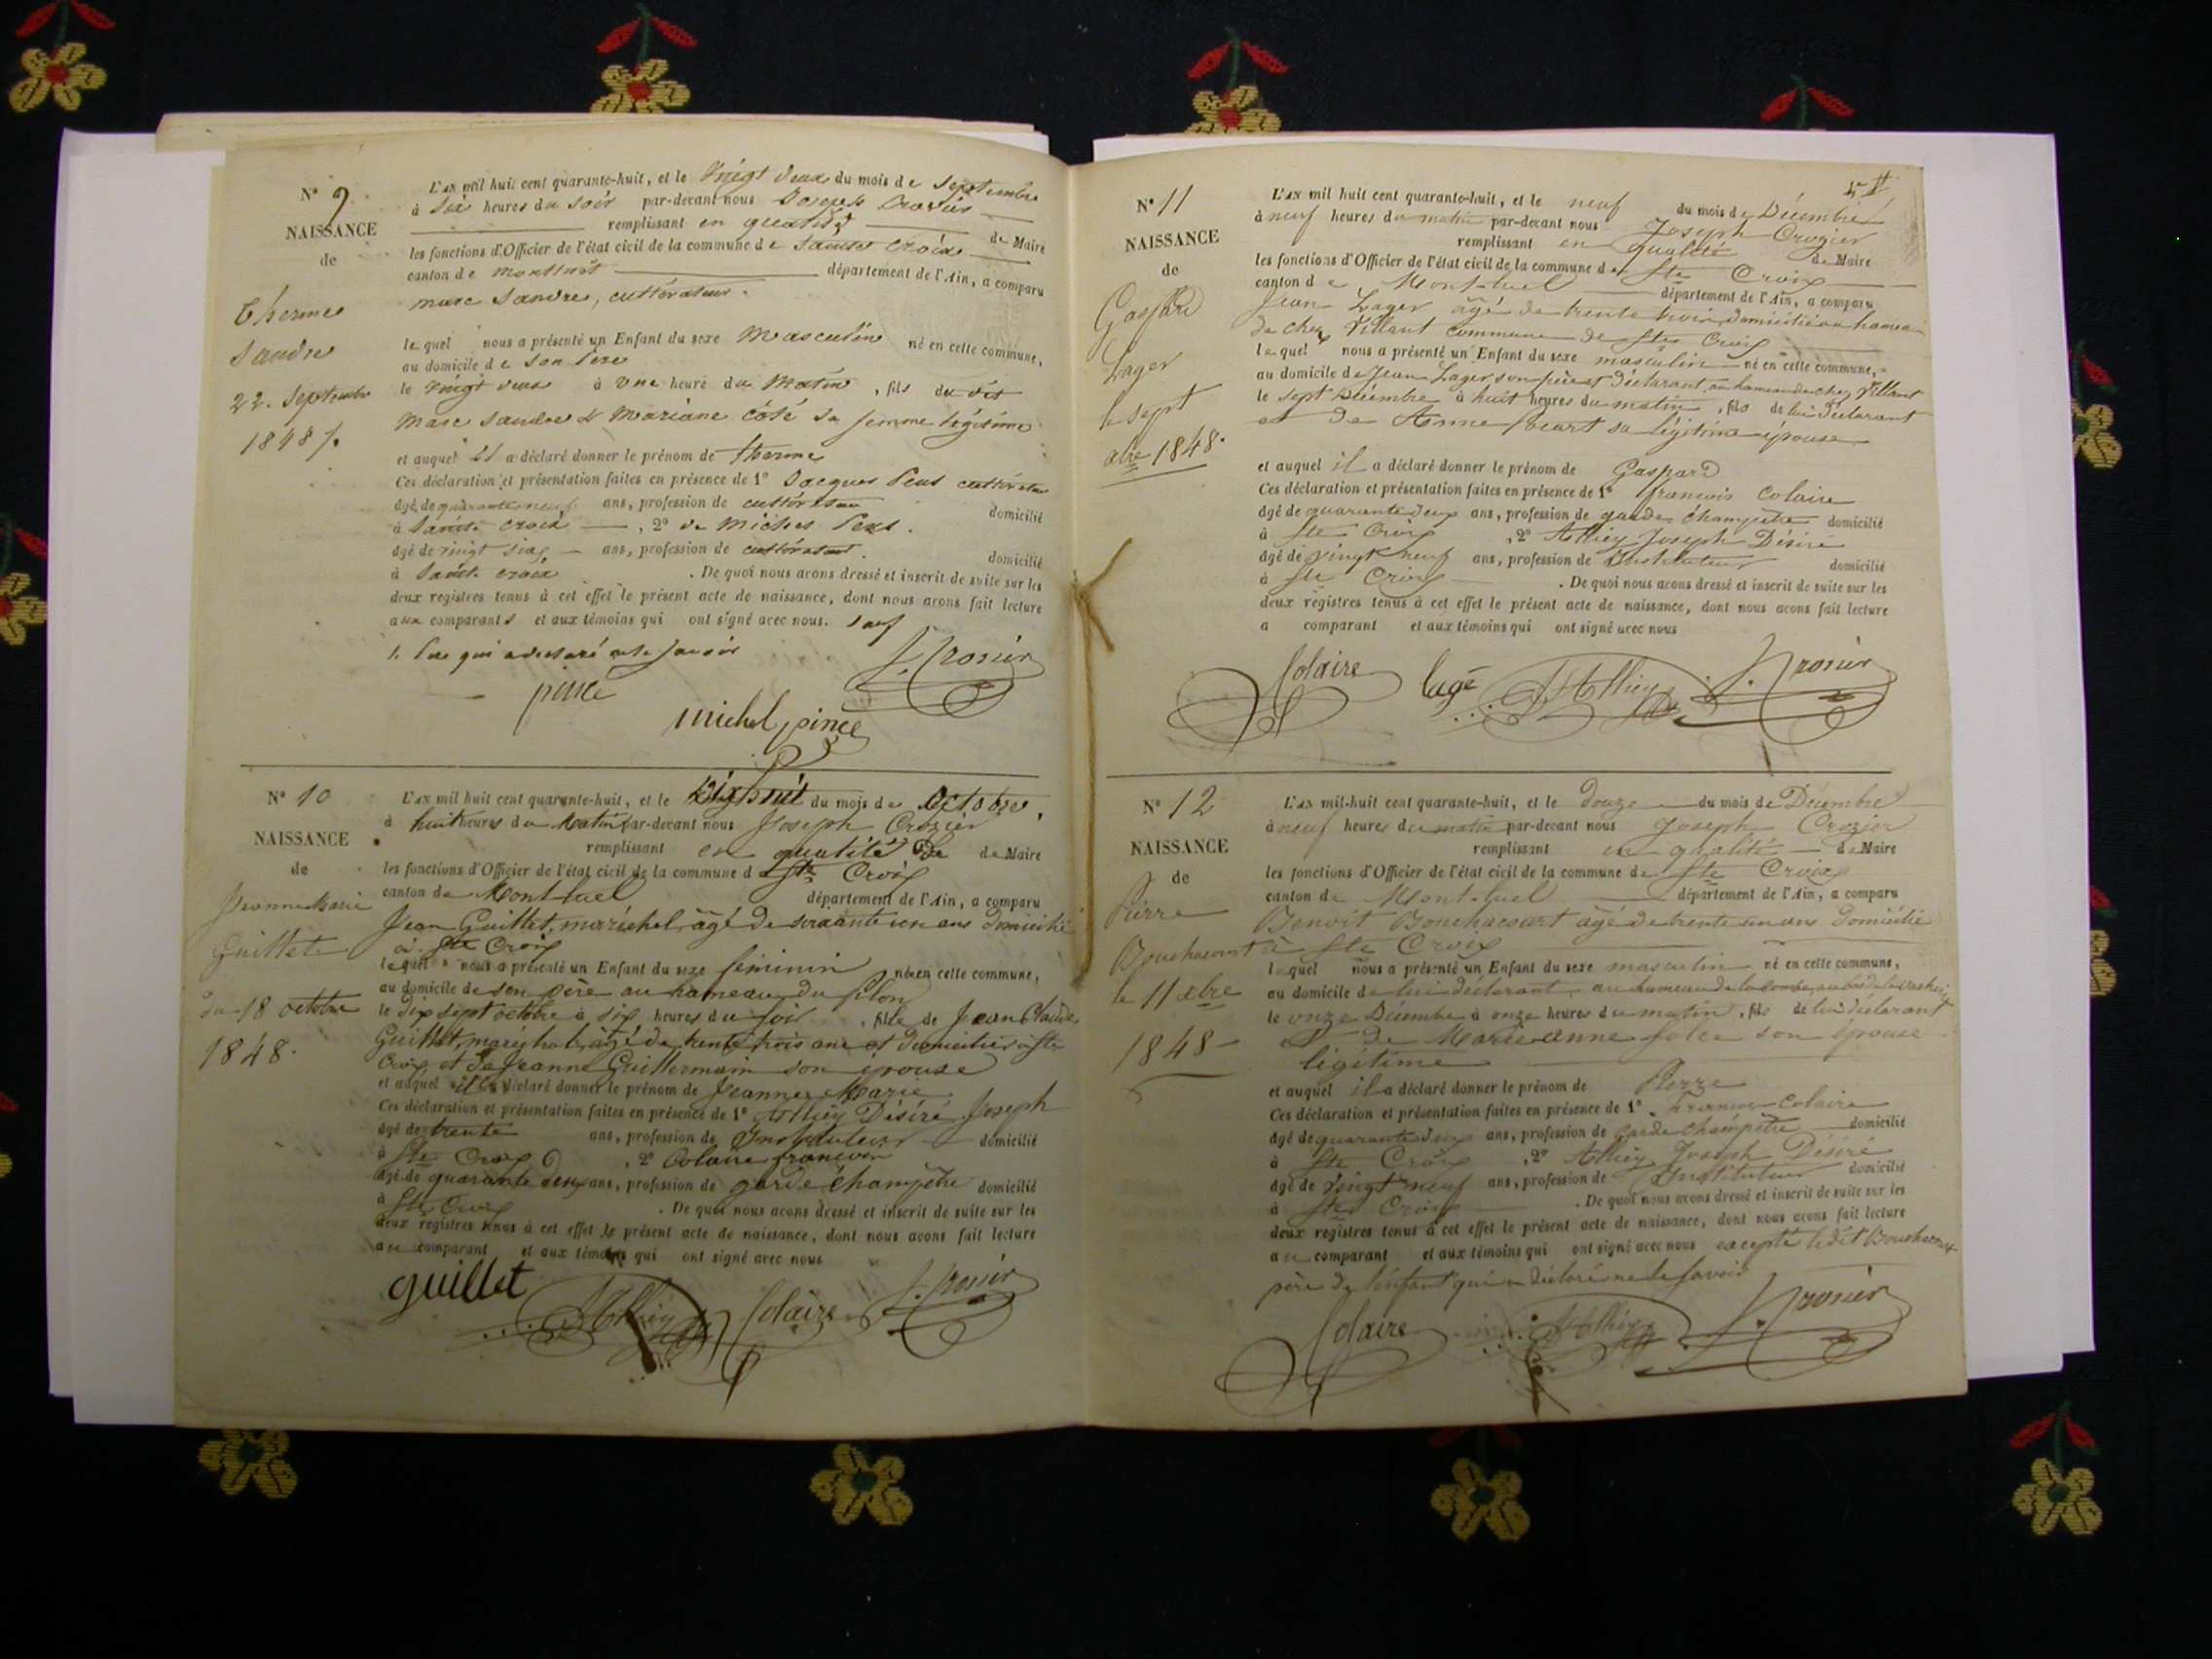 N° 9
NAISSANCE
de
therme
Sandre
22. Septembre
1848
L'AN mil huit cent quarante-huit, et le Vingt deux du mois de Septembre
à six heures du soir par-devant nous Joseph Crozier
remplissant en qualité de Maire
les fonctions d'Officier de l'état civil de la commune de Sainte Croix
canton de montluel département de l'Ain, a comparu
marc Sandre, cultivateur
lequel nous a présenté un Enfant du sexe Masculin né en cette commune,
au domicile de son Père
le Vingt deux à une heure du Matin, fils du dit
Marc Sandre & Mariane côté sa femme légitime
et auquel il a déclaré donner le prénom de therme
Ces déclaration et présentation faites en présence de 1° Jacques cultivateur
âgé de quarante neuf ans, profession de cultivateur domicilié
à Sainte croix, 2° de Michel
âgé de vingt six ans, profession de cultivateur domicilié
à Sainte croix. De quoi nous avons dressé et inscrit de suite sur les
deux registres tenus à cet effet le présent acte de naissance, dont nous avons fait lecture
aux comparants et aux témoins qui ont signé avec nous. sauf
le Père qui a declaré ne le savoir
J. Crozier
pince
michel pince
N° 10
NAISSANCE
de
Jeanne Marie
Guillet
du 18 octobre
1848.
L'AN mil huit cent quarante-huit, et le dix huit du mois de Octobre,
à huit heures du Matin par-devant nous Joseph Crozier
remplissant en qualité de de Maire
les fonctions d'Officier de l'état civil de la commune de Ste Croix
canton de Montluel département de l'Ain, a comparu
Jean Guillet, maréchal, âgé de soixante un ans domicilié
à Ste Croix
lequel nous a présenté un Enfant du sexe féminin née en cette commune,
au domicile de son père au hameau du pilon
le dix sept octobre à six heures du soir, fille de Jean Claude
Guillet, maréchal, âgé de trente trois ans et domicilié à Ste
Croix et de Jeanne Guillermain son épouse
et auquel il a déclaré donner le prénom de Jeanne Marie
Ces déclaration et présentation faites en présence de 1° Athiey Désiré Joseph
âgé de trente ans, profession de Instituteur domicilié
à Ste Croix, 2° Colaire francois
âgé de quarante deux ans, profession de garde champêtre domicilié
à Ste Croix. De quoi nous avons dressé et inscrit de suite sur les
deux registres tenus à cet effet le présent acte de naissance, dont nous avons fait lecture
au comparant et aux témoins qui ont signé avec nous
guillet Colaire J. Crozier
N° 11
NAISSANCE
de
Gaspard
Lager
le sept
xbre 1848.
L'AN mil huit cent quarante-huit, et le neuf du mois de Décembre
à neuf heures du matin par-devant nous Joseph Crozier
remplissant en qualité de Maire
les fonctions d'Officier de l'état civil de la commune de Ste Croix
canton de Mont-luel département de l'Ain, a comparu
Jean Lager âgé de trente trois, domicilié au hameau
de chez Villant commune de Ste Croix
lequel nous a présenté un Enfant du sexe masculin né en cette commune,
au domicile de Jean Lager son père et déclarant, au hameau de chez Villant
le sept Décembre à huit heures du matin, fils de lui déclarant
et de Anne sa légitime épouse
et auquel il a déclaré donner le prénom de Gaspard
Ces déclaration et présentation faites en présence de 1° francois Colaire
âgé de quarante deux ans, profession de garde champêtre domicilié
à Ste Croix, 2° Athiey Joseph Désiré
âgé de vingt neuf ans, profession de Instituteur domicilié
à Ste Croix. De quoi nous avons dressé et inscrit de suite sur les
deux registres tenus à cet effet le présent acte de naissance, dont nous avons fait lecture
a comparant et aux témoins qui ont signé avec nous
Colaire lagé J. Crozier
N° 12
NAISSANCE
de
Pierre
Bouchacourt
le 11 xbre
1848
L'AN mil-huit cent quarante-huit, et le douze du mois de Décembre
à neuf heures du matin par-devant nous Joseph Crozier
remplissant en qualité de Maire
les fonctions d'Officier de l'état civil de la commune de Ste Croix
canton de Mont-luel département de l'Ain, a comparu
Benoît Bouchacourt âgé de trente un ans domicilié
à Ste Croix
lequel nous a présenté un Enfant du sexe masculin né en cette commune,
au domicile de lui déclarant, au hameau de la
le onze Décembre à onze heures du matin, fils de lui déclarant
& de Marie-anne son épouse
légitime
et auquel il a déclaré donner le prénom de Pierre
Ces déclaration et présentation faites en présence de 1° francois Colaire
âgé de quarante deux ans, profession de Garde champêtre domicilié
à Ste Croix, 2° Athiey Joseph Désiré
âgé de vingt neuf ans, profession de Instituteur domicilié
à Ste Croix. De quoi nous avons dressé et inscrit de suite sur les
deux registres tenus à cet effet le présent acte de naissance, dont nous avons fait lecture
au comparant et aux témoins qui ont signé avec nous excepté ledit Bouchacourt
père de l'enfant qui a déclaré ne le savoir
Colaire J. Crozier